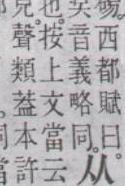 碭。西都賦曰。从
吳音義略同。
也。按上文當云
兒。聲類蓋本許